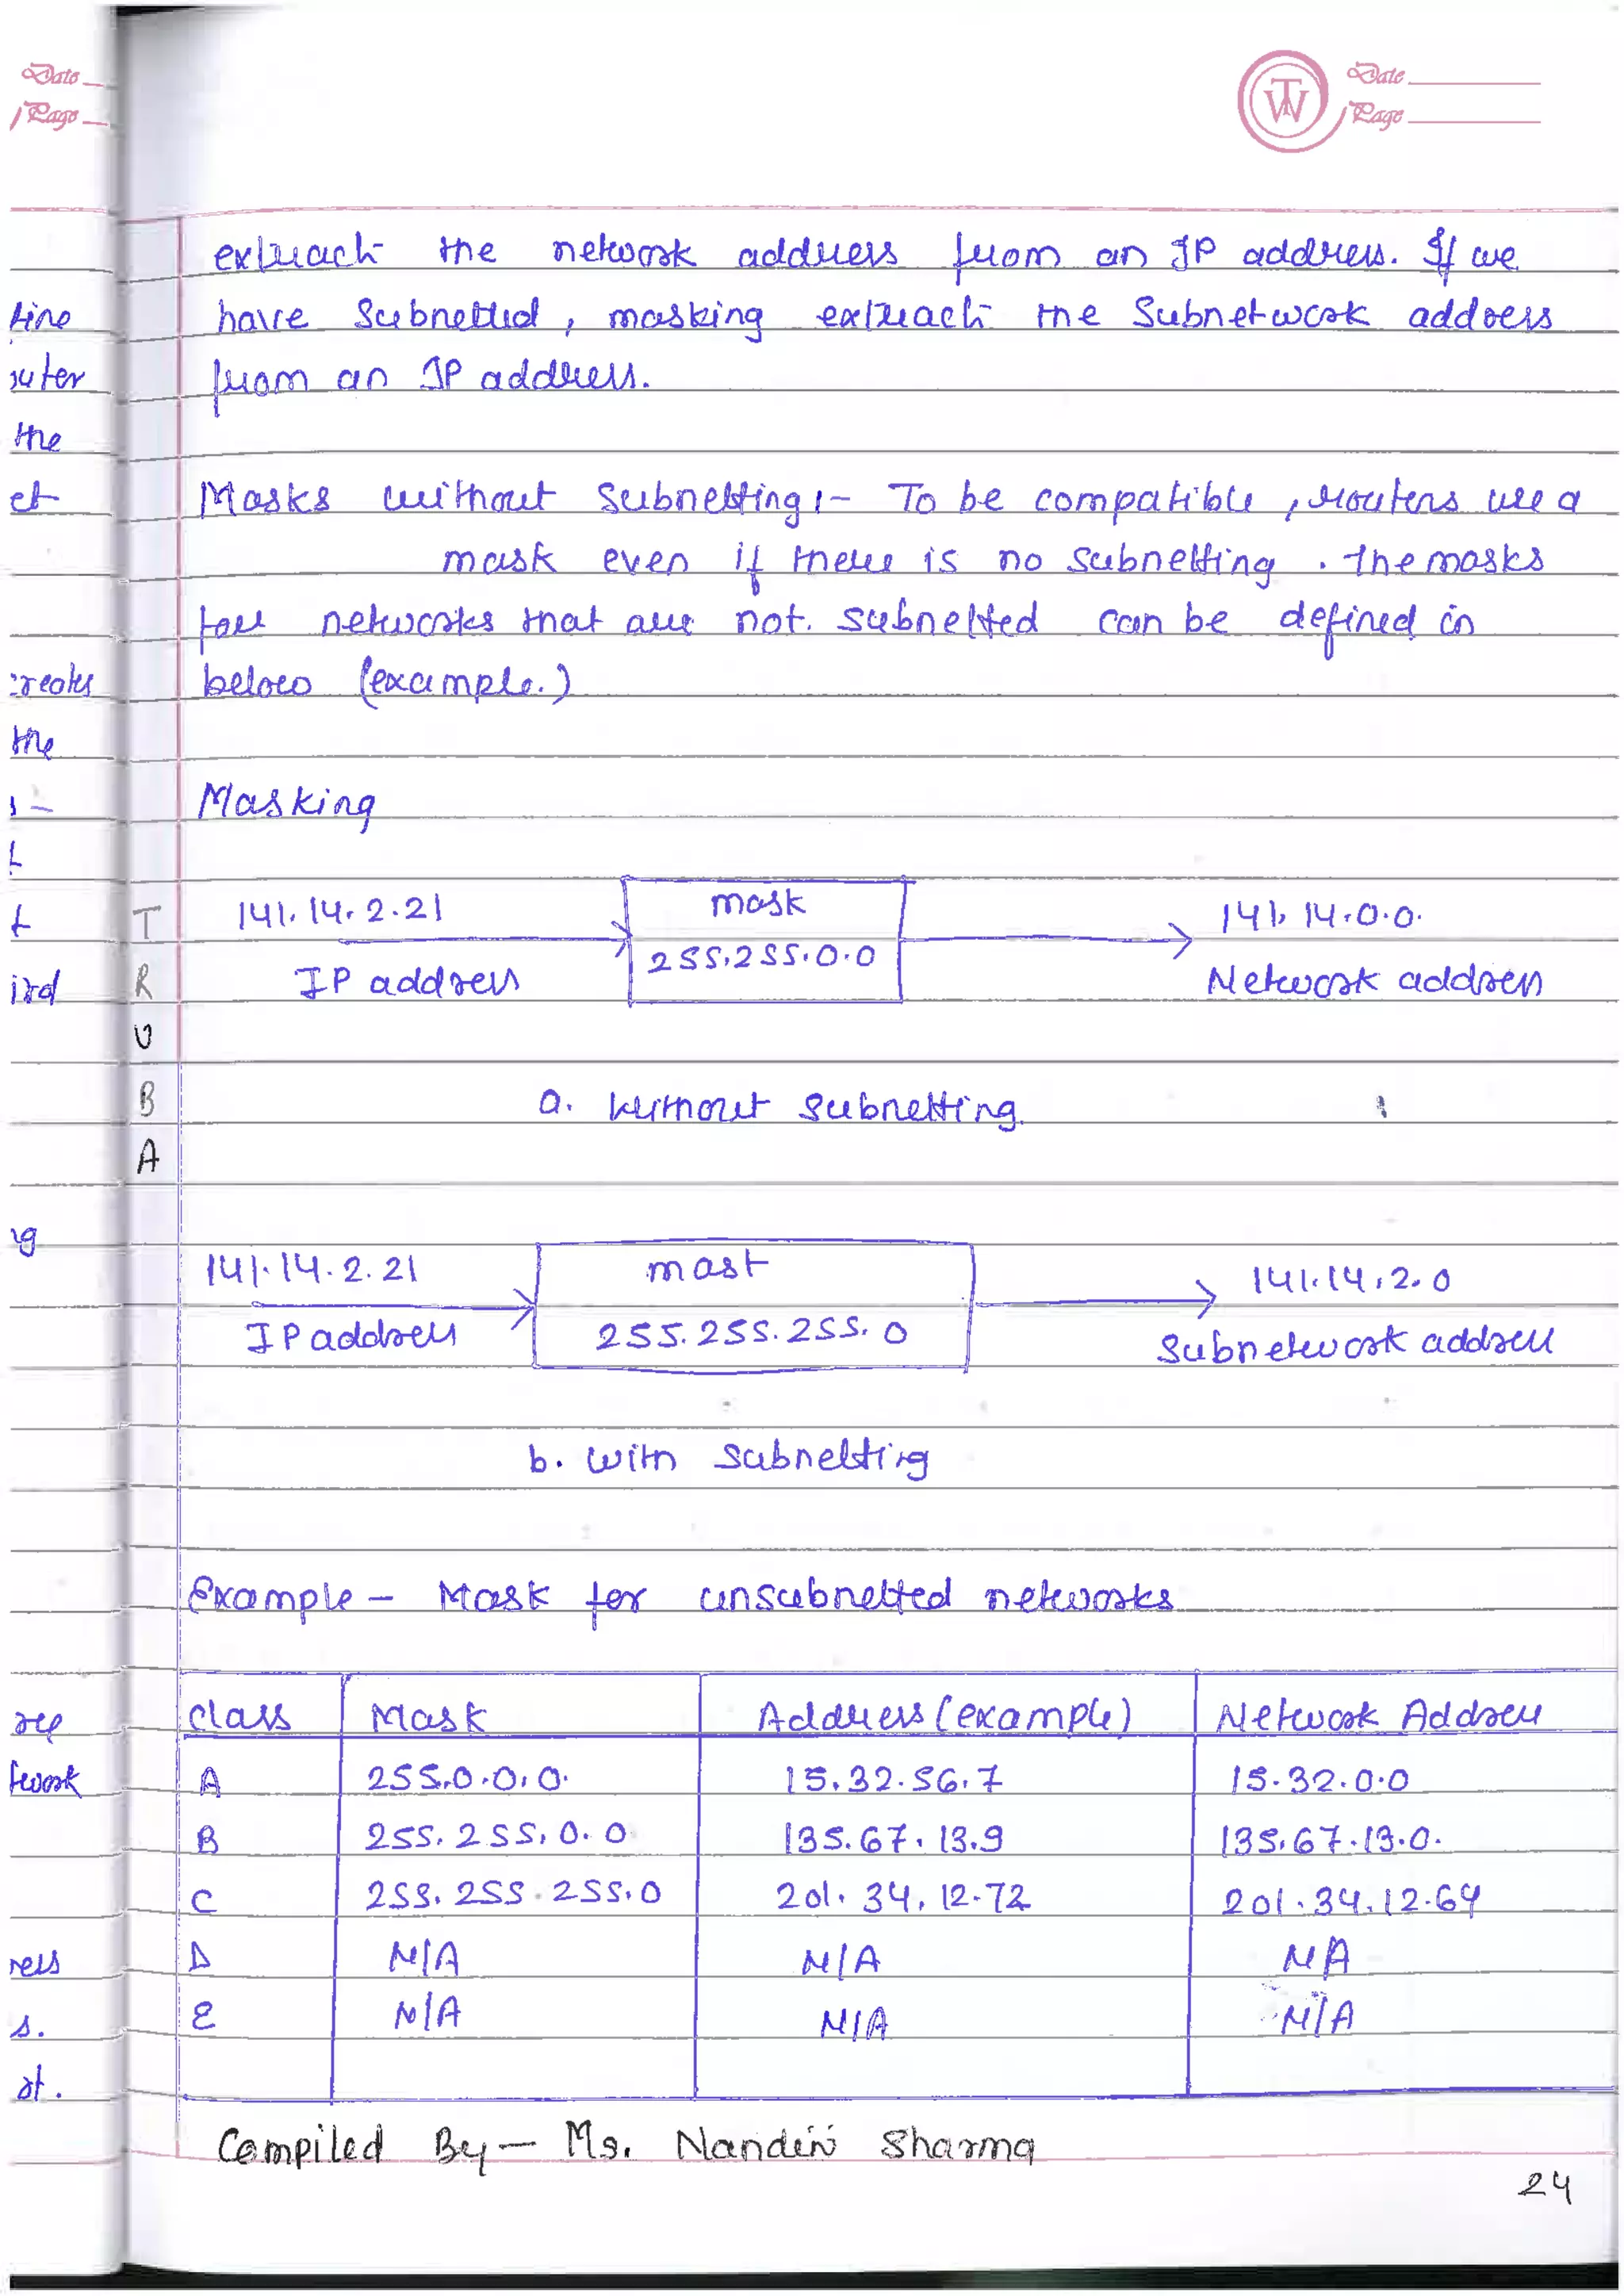 Date
Page
Date
Page
TW
extract the network address from an IP address. If we
have Subnetted, masking extract the Subnetwork address
from an IP address.
Masks without Subnetting:- To be compatible, routers use a
mask even if there is no subnetting. The masks
for networks that are not. subnetted can be defined in
below (example.)
Masking
141.14.2.21
IP address
mask
255.255.0.0
141.14.0.0.
Network address
a. Without subnetting.
141.14.2.21
IP address
mast
255.255.255.0
141.14.2.0
Subnetwork address
b. With Subnetting
Example - Mask for unsubnetted networks
Class Mask Address (example) Network Address
A 255.0.0.0. 15.32.56.7 15.32.0.0
B 255.255.0.0 135.67.13.9 135.67.13.0.
C 255.255.255.0 201.34.12.72 201.34.12.64
D N/A N/A N/A
E N/A N/A N/A
Compiled By - Ms. Nandini Sharma
24
T
R
U
B
A
the
the